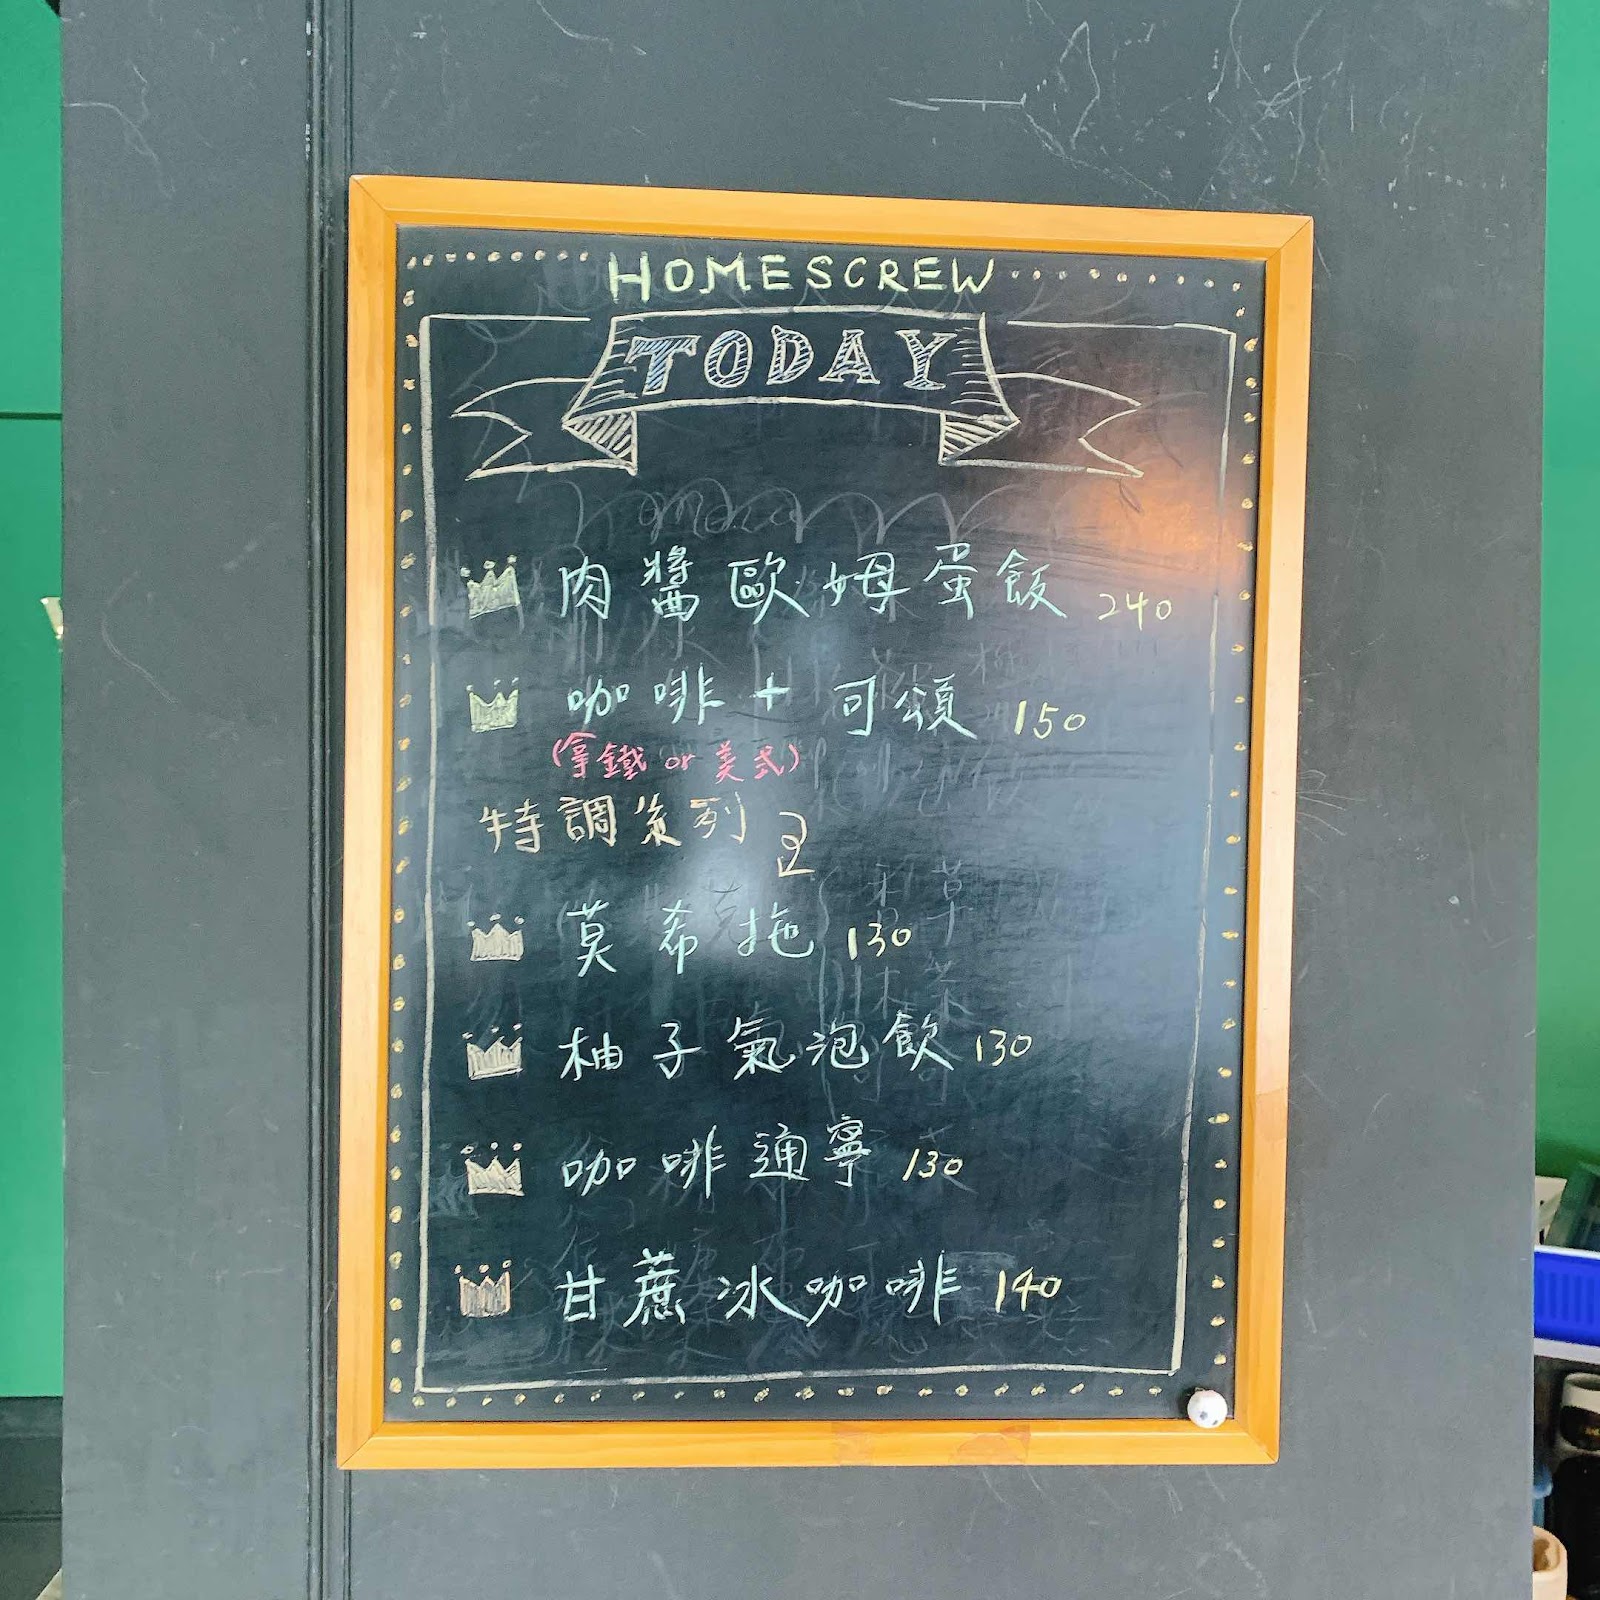 HOMESCREW
TODAY
肉醬歐姆蛋飯 240
咖啡+可頌 150
(拿鐵 or 美式)
特調系列
莫希拖 130
柚子氣泡飲 130
咖啡通寧 130
甘蔗冰咖啡 140